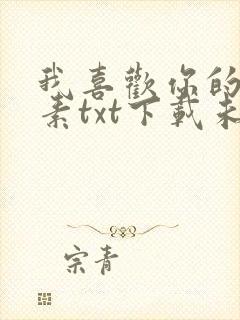 我喜歡你的
素txt下載未
宗青